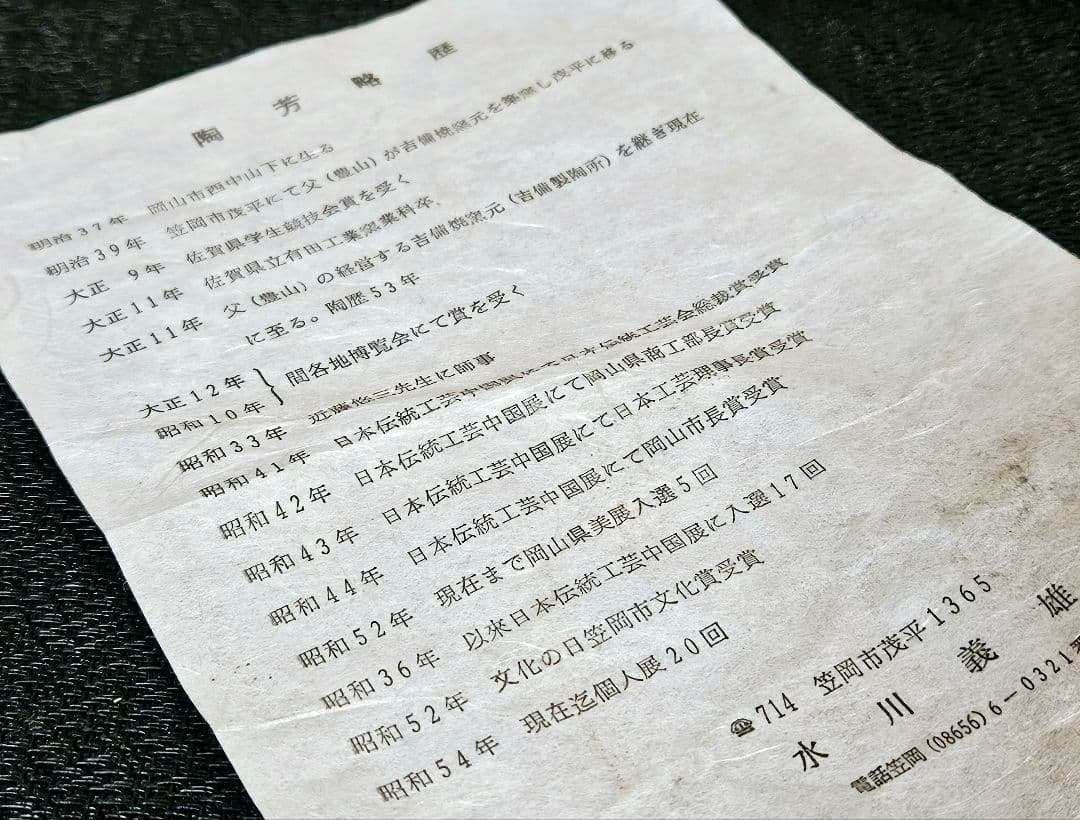 陶芳略歴
明治37年 岡山市西中山下に生る
明治39年 笠岡市茂平にて父(豊山)が吉備焼窯元を築窯し茂平に移る
大正 9年 佐賀県学生競技会賞を受く
大正11年 佐賀県立有田工業窯業科卒、
大正11年 父(豊山)の経営する吉備焼窯元(吉備製陶所)を継ぎ現在
に至る。陶歴53年
大正12年
昭和10年 } 間各地博覧会にて賞を受く
昭和33年 近藤悠三先生に師事
昭和41年 日本伝統工芸中国展にて日本伝統工芸会総裁賞受賞
昭和42年 日本伝統工芸中国展にて岡山県商工部長賞受賞
昭和43年 日本伝統工芸中国展にて日本工芸理事長賞受賞
昭和44年 日本伝統工芸中国展にて岡山市長賞受賞
昭和52年 現在まで岡山県美展入選5回
昭和36年 以來日本伝統工芸中国展に入選17回
昭和52年 文化の日笠岡市文化賞受賞
昭和54年 現在迄個人展20回
☎714 笠岡市茂平1365
水川義雄
電話笠岡(08656)6-0321番